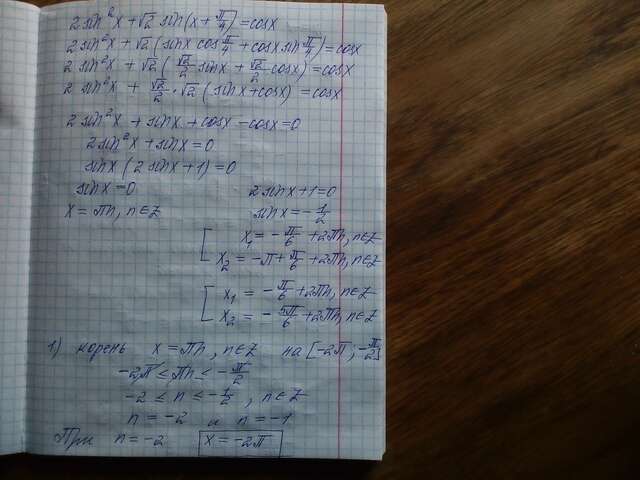 2 sin²x + √2 sin(x + π/4) = cosx
2 sin²x + √2 (sinx cos π/4 + cosx sin π/4) = cosx
2 sin²x + √2 (√2/2 sinx + √2/2 cosx) = cosx
2 sin²x + √2/2 · √2 (sinx + cosx) = cosx
2 sin²x + sinx + cosx - cosx = 0
2 sin²x + sinx = 0
sinx (2 sinx + 1) = 0
sinx = 0 2 sinx + 1 = 0
x = πn, n ∈ Z sinx = -1/2
[ x₁ = -π/6 + 2πn, n ∈ Z
x₂ = -π + π/6 + 2πn, n ∈ Z
[ x₁ = -π/6 + 2πn, n ∈ Z
x₂ = -5π/6 + 2πn, n ∈ Z
1) корень x = πn, n ∈ Z на [-2π; -π/2]
-2π ≤ πn ≤ -π/2
-2 ≤ n ≤ -1/2, n ∈ Z
n = -2 и n = -1
При n = -2 x = -2π